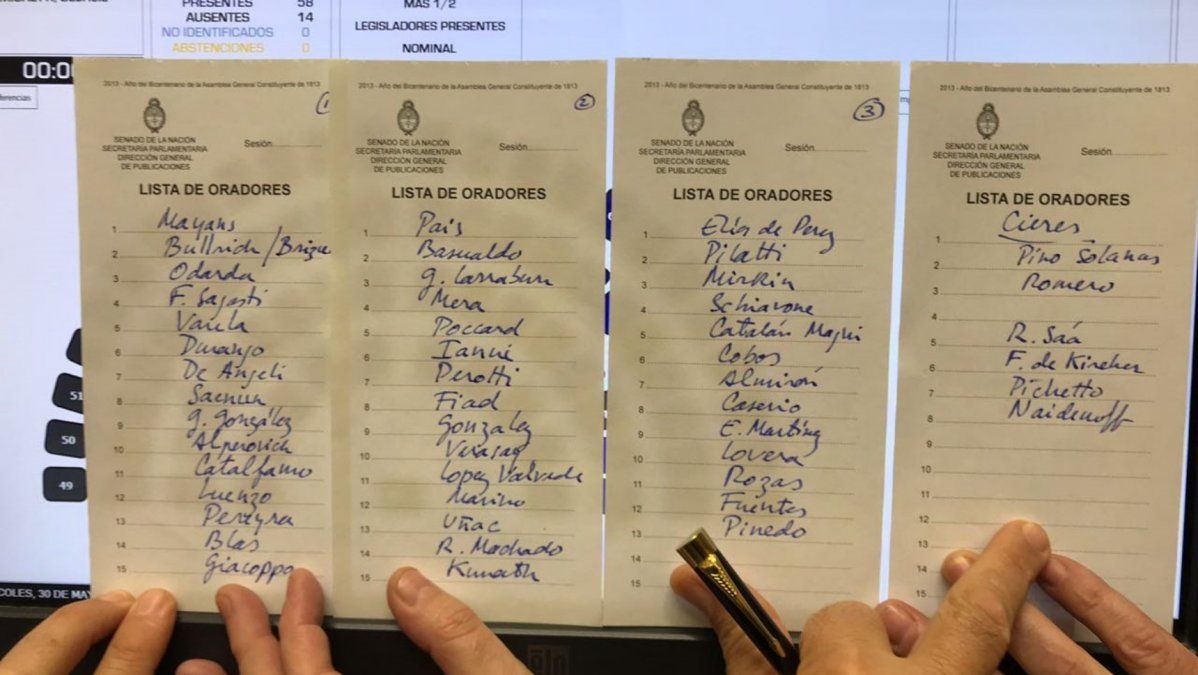 PRESENTES 58
AUSENTES 14
NO IDENTIFICADOS 0
ABSTENCIONES 0
MAS 1/2
LEGISLADORES PRESENTES
NOMINAL
00:0
51
50
49
COLES, 30 DE MAY
2013 - Año del Bicentenario de la Asamblea General Constituyente de 1813
1
SENADO DE LA NACIÓN
SECRETARÍA PARLAMENTARIA
DIRECCIÓN GENERAL
DE PUBLICACIONES
Sesión
LISTA DE ORADORES
1 Mayans
2 Bullrich/Brizue
3 Odarda
4 F. Sagasti
5 Varela
6 Durango
7 De Angeli
8 Sacnun
9 g. gonzález
10 Alperovich
11 Catalfamo
12 Luenzo
13 Pereyra
14 Blas
15 Giacoppo
2013 - Año del Bicentenario de la Asamblea General Constituyente de 1813
2
SENADO DE LA NACIÓN
SECRETARÍA PARLAMENTARIA
DIRECCIÓN GENERAL
DE PUBLICACIONES
Sesión
LISTA DE ORADORES
1 Pais
2 Basualdo
3 g. Larraburu
4 Mera
5 Poccard
6 Ianni
7 Perotti
8 Fiad
9 Gonzalez
10 Verasay
11 Lopez Valverde
12 Marino
13 Uñac
14 R. Machado
15 Kunath
2013 - Año del Bicentenario de la Asamblea General Constituyente de 1813
3
SENADO DE LA NACIÓN
SECRETARÍA PARLAMENTARIA
DIRECCIÓN GENERAL
DE PUBLICACIONES
Sesión
LISTA DE ORADORES
1 Elías de Perez
2 Pilatti
3 Mirkin
4 Schiavone
5 Catalán Magni
6 Cobos
7 Almirón
8 Caserio
9 E. Martínez
10 Lovera
11 Rozas
12 Fuentes
13 Pinedo
14
15
2013 - Año del Bicentenario de la Asamblea General Constituyente de 1813
SENADO DE LA NACIÓN
SECRETARÍA PARLAMENTARIA
DIRECCIÓN GENERAL
DE PUBLICACIONES
Sesión
LISTA DE ORADORES
Cierres
1
2 Pino Solanas
3 Romero
5 R. Saá
6 F. de Kirchner
7 Pichetto
8 Naidenoff
9
10
11
12
13
14
15